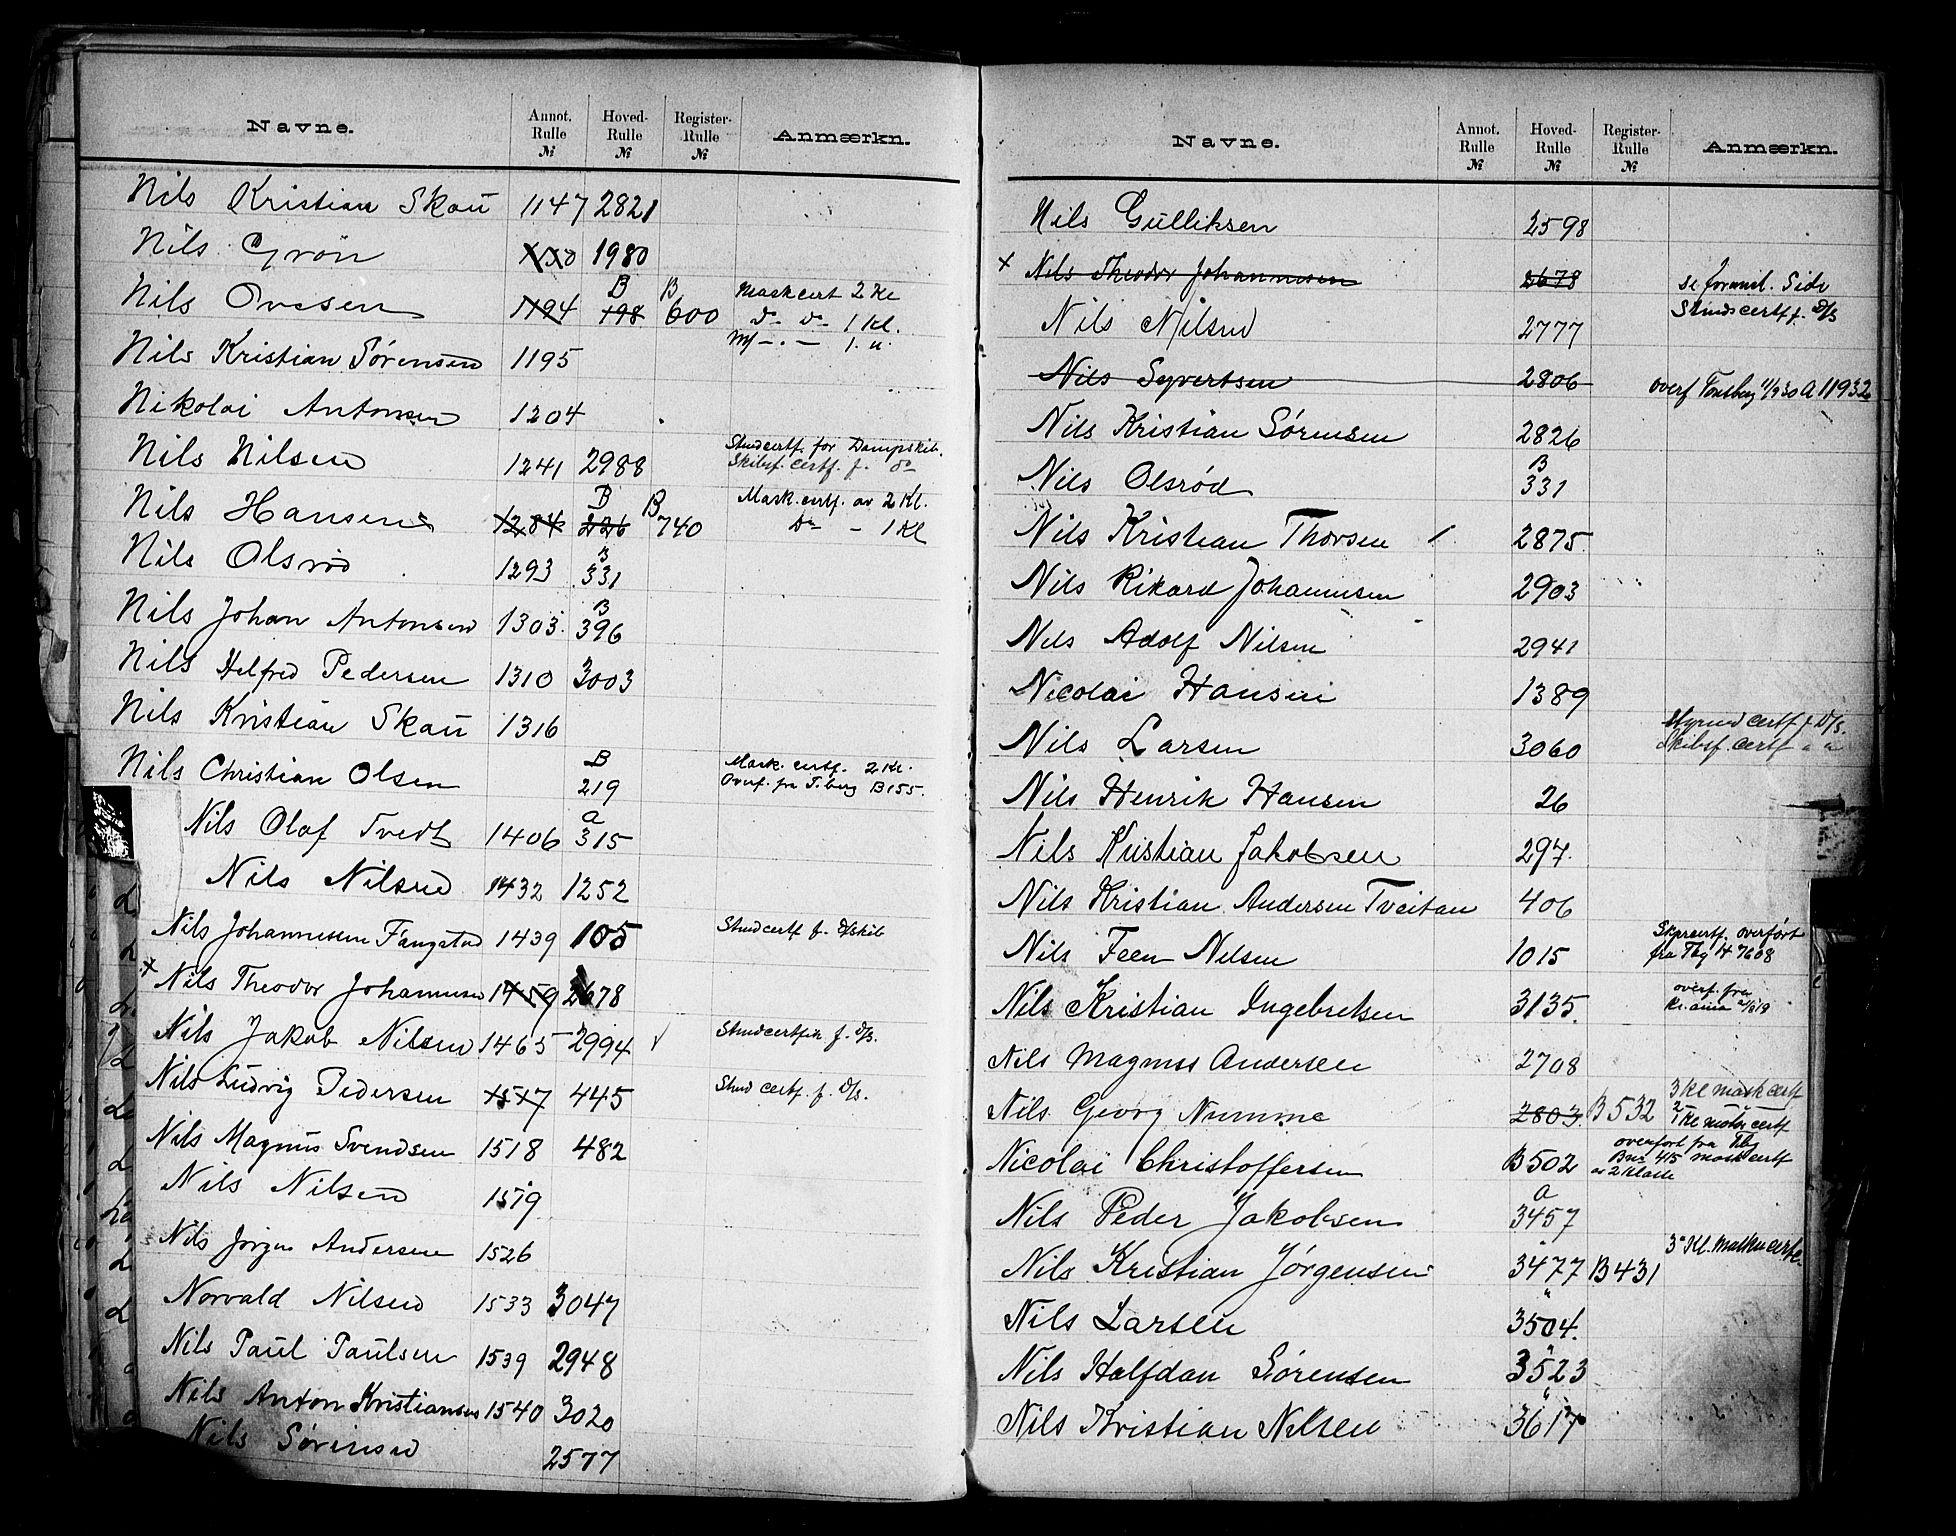 Navne. Annot. Rulle № Hoved-Rulle № Register-Rulle № Anmærkn.
Nils Kristian Skau 1147 2821
Nils Grön 1150 1980
Nils Ovesen 1194 B 198 B 600 Maskcert 2 Kl
do do 1 Kl.
Nils Kristian Sørensen 1195
Nikolai Antonsen 1204
Nils Nilsen 1241 2988 Stmdcertf. for Dampskib.
Skibsf. certf. f. do
Nils Hansen 1284 B 226 B 740 Mask. certf. av 2 Kl.
do - 1 Kl
Nils Olsrød 1293 B 331
Nils Johan Antonsen 1303 B 396
Nils Helfred Pedersen 1310 3003
Nils Kristian Skau 1316
Nils Christian Olsen B 219 Mask. certf. 2 Kl.
Overf. fra T.berg B 155.
Nils Olaf Tvedt 1406 a 315
Nils Nilsen 1432 1252
Nils Johannessen Fangstad 1439 105 Stmdcertf f. D/skib
x Nils Theodor Johannesen 1459 2678
Nils Jakob Nilsen 1465 2994 v Stmdcertfik f. D/s.
Nils Ludvig Pedersen 1517 445 Stmd certf. f. D/s.
Nils Magnus Svendsen 1518 482
Nils Nilsen 1519
Nils Jörgen Andersen 1526
Norvald Nilsen 1533 3047
Nils Paul Paulsen 1539 2948
Nils Anton Kristiansen 1540 3020
Nils Sörensen 2577
Navne. Annot. Rulle № Hoved-Rulle № Register-Rulle № Anmærkn.
Nils Gulliksen 2598
x Nils Theodor Johannesen 2678 se foranst. Side
Nils Nilsen 2777 Stmdscertf f. D/s
Nils Syvertsen 2806 overf Tønsberg 11/9 30 A 11932
Nils Kristian Sørensen 2826
Nils Olsrød B 331
Nils Kristian Thorsen 2875
Nils Rikard Johannesen 2903
Nils Adolf Nilsen 2941
Nicolai Hansen 1389
Nils Larsen 3060 Styrmd certf f D/s.
Skibsf. certf " "
Nils Henrik Hansen 26
Nils Kristian Jakobsen 297.
Nils Kristian Andersen Tveitan 406
Nils Feen Nilsen 1015 Skprcertf. overført
fra Tbg 7608
Nils Kristian Ingebretsen 3135. overf. fra
Kr.ania
Nils Magnus Andersen 2708
Nils Georg Numme 2803 B 532 3 Kl mask certf
1 Kl motor certf
Nicolai Christoffersen B 502 overfört fra Tbg
B no 415 mask certf
av 2 Klasse
Nils Peder Jakobsen a 3457
Nils Kristian Jørgensen " 3477 B 431 3" Kl. Mask certf.
Nils Larsen " 3504.
Nils Halfdan Sørensen " 3523
Nils Kristian Nilsen " 3617